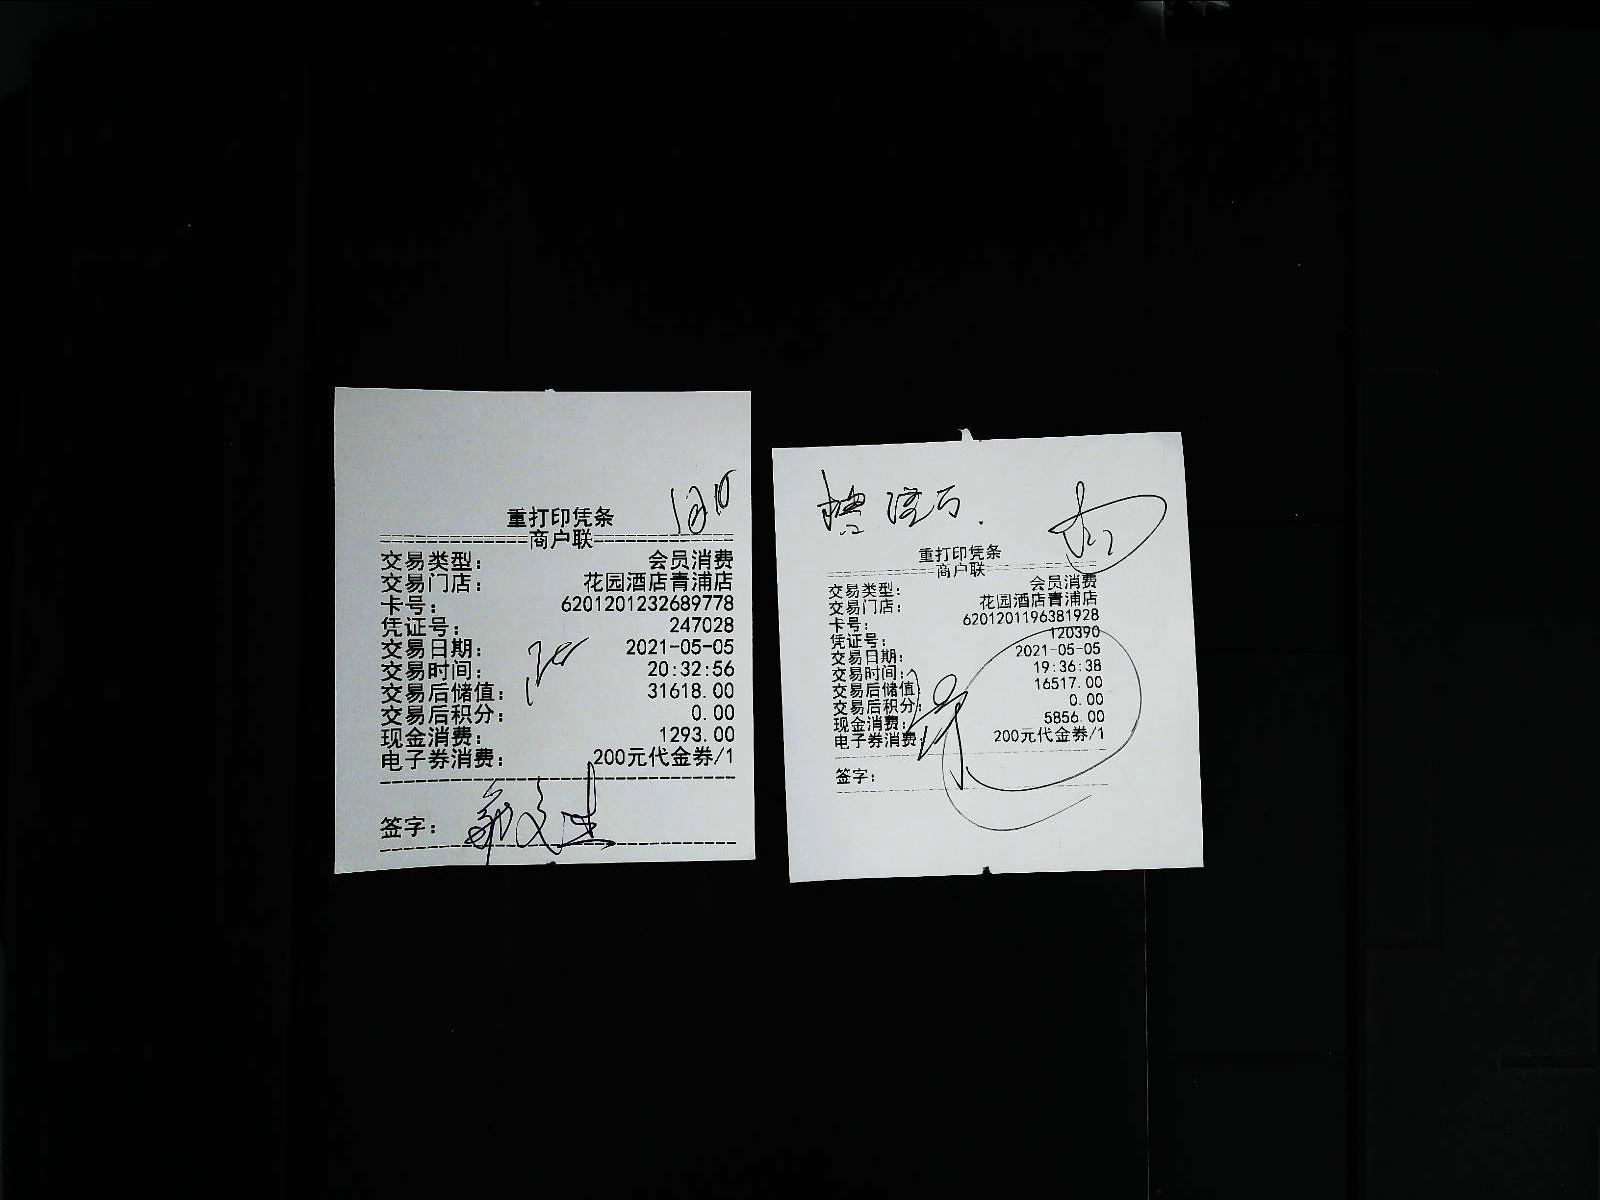 重打印凭条
商户联
交易类型： 会员消费
交易门店： 花园酒店青浦店
卡号： 6201201232689778
凭证号： 247028
交易日期： 2021-05-05
交易时间： 20:32:56
交易后储值： 31618.00
交易后积分： 0.00
现金消费： 1293.00
电子券消费： 200元代金券/1
签字：
重打印凭条
商户联
交易类型： 会员消费
交易门店： 花园酒店青浦店
卡号： 6201201196381928
凭证号： 120390
交易日期： 2021-05-05
交易时间： 19:36:38
交易后储值 16517.00
交易后积分： 0.00
现金消费： 5856.00
电子券消费： 200元代金券/1
签字：